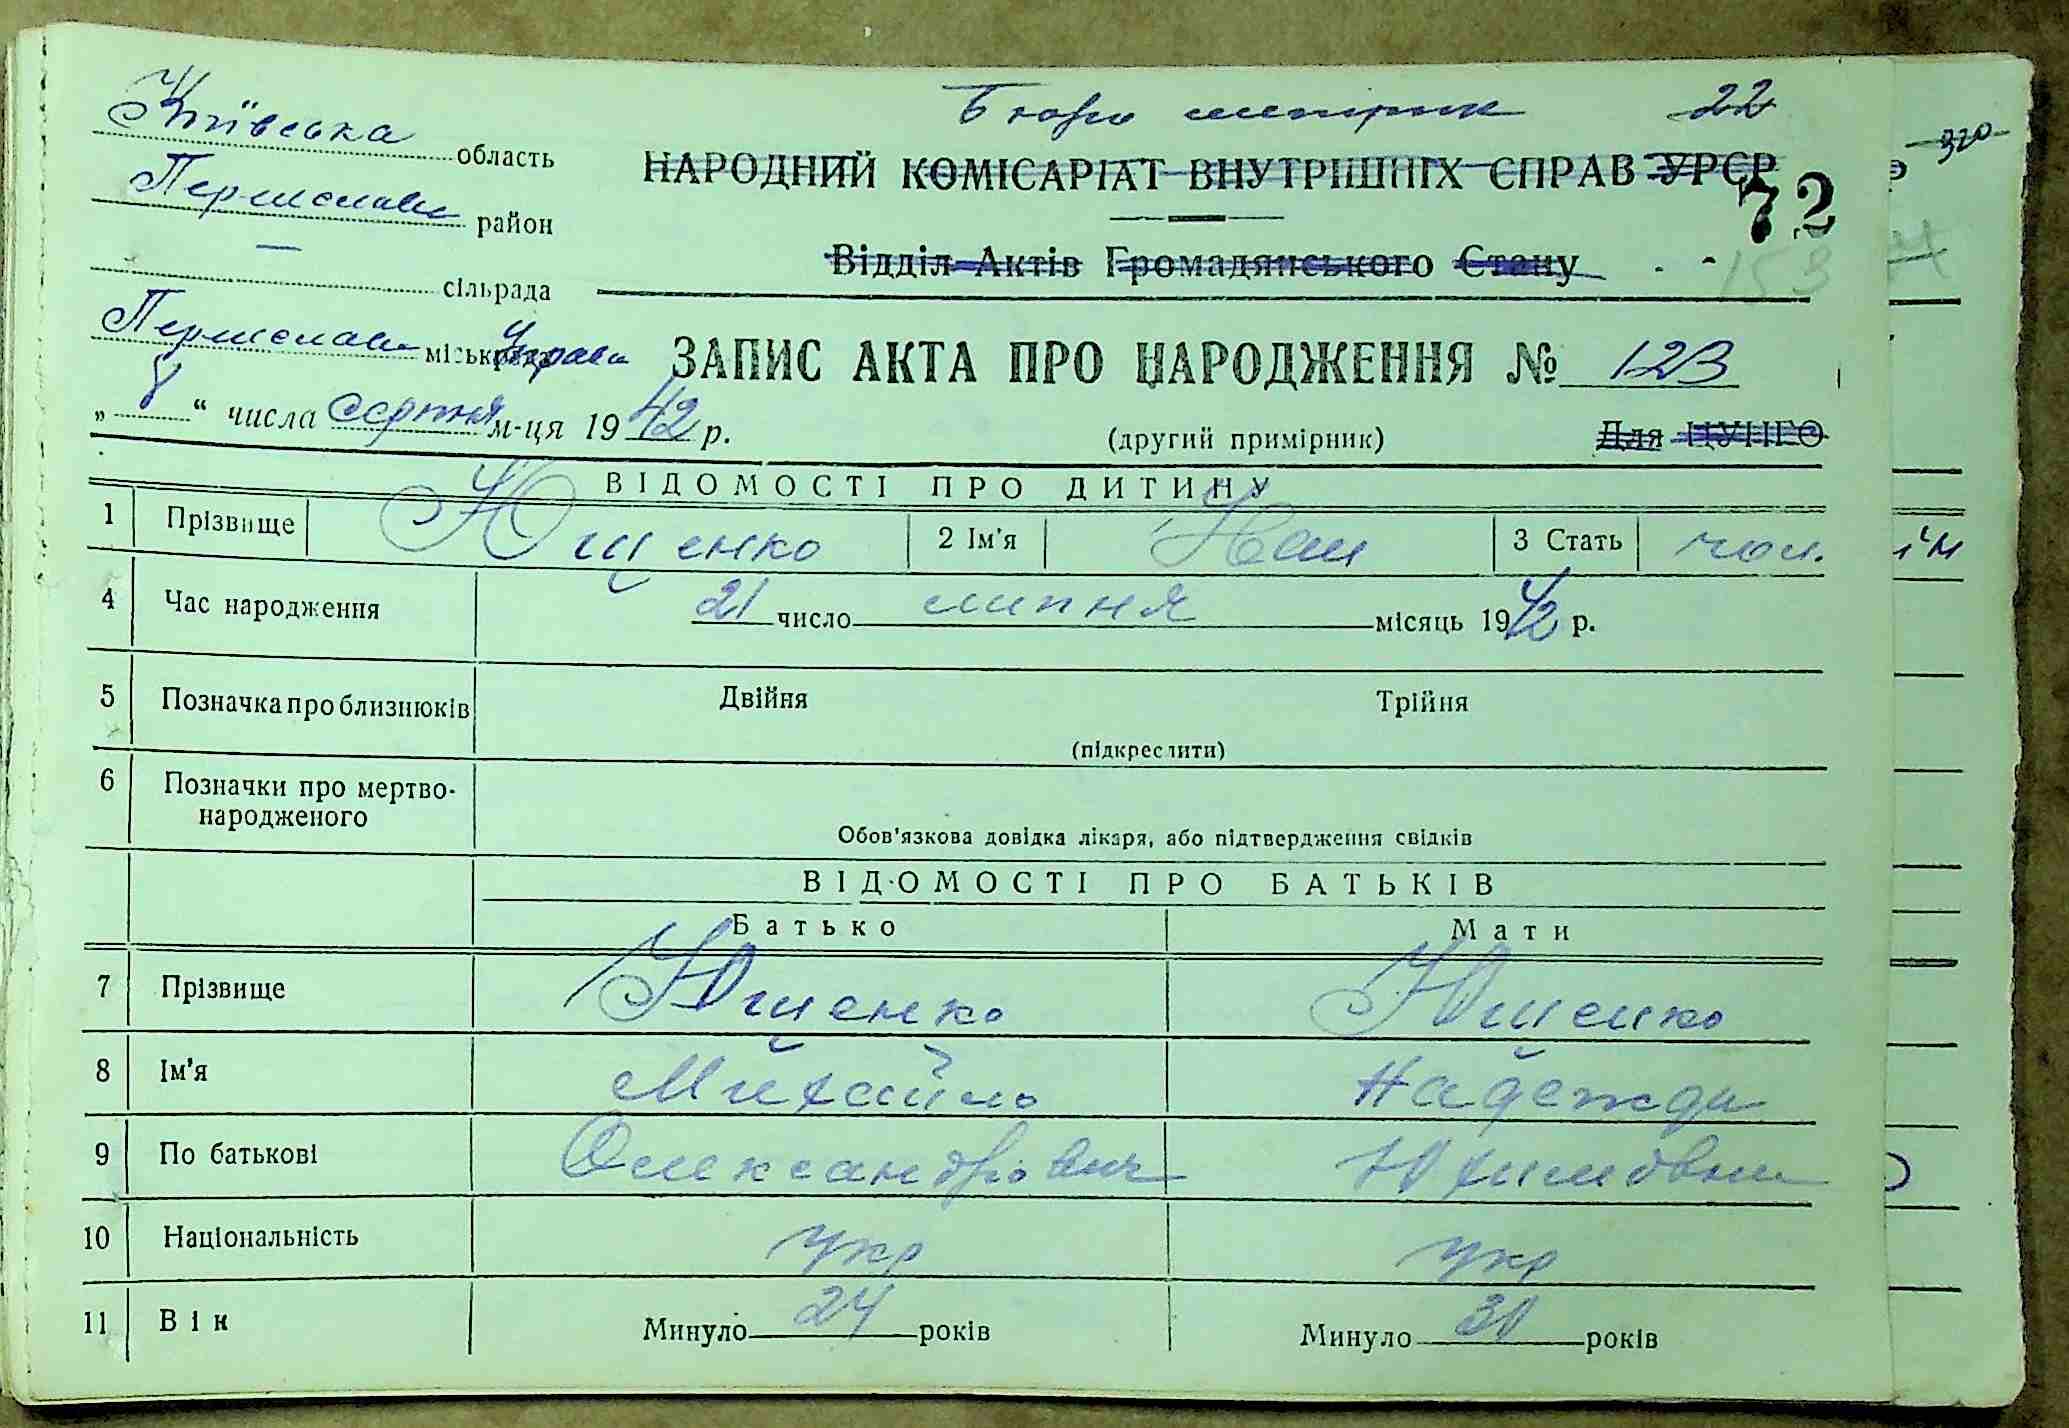 Київська область
Бюро метрик 22
НАРОДНИЙ КОМІСАРІАТ ВНУТРІШНІХ СПРАВ УРСР
Переяслав район
72
Відділ Актів Громадянського Стану
153
— сільрада
Переяслав міськрада Управа
ЗАПИС АКТА ПРО НАРОДЖЕННЯ № 123
„ 8 “ числа серпня м-ця 1942 р.
(другий примірник)
Для ЦУНГО
ВІДОМОСТІ ПРО ДИТИНУ
1 Прізвище Ющенко 2 Ім'я 3 Стать чол.
4 Час народження 21 число липня місяць 1942 р.
5 Позначка про близнюків Двійня Трійня
(підкреслити)
6 Позначки про мертво-
народженого
Обов'язкова довідка лікаря, або підтвердження свідків
ВІДОМОСТІ ПРО БАТЬКІВ
Батько Мати
7 Прізвище Ющенко Ющенко
8 Ім'я Михайло Надежда
9 По батькові Олександрович Юхимовна
10 Національність укр укр
11 Вік Минуло 24 років Минуло 30 років